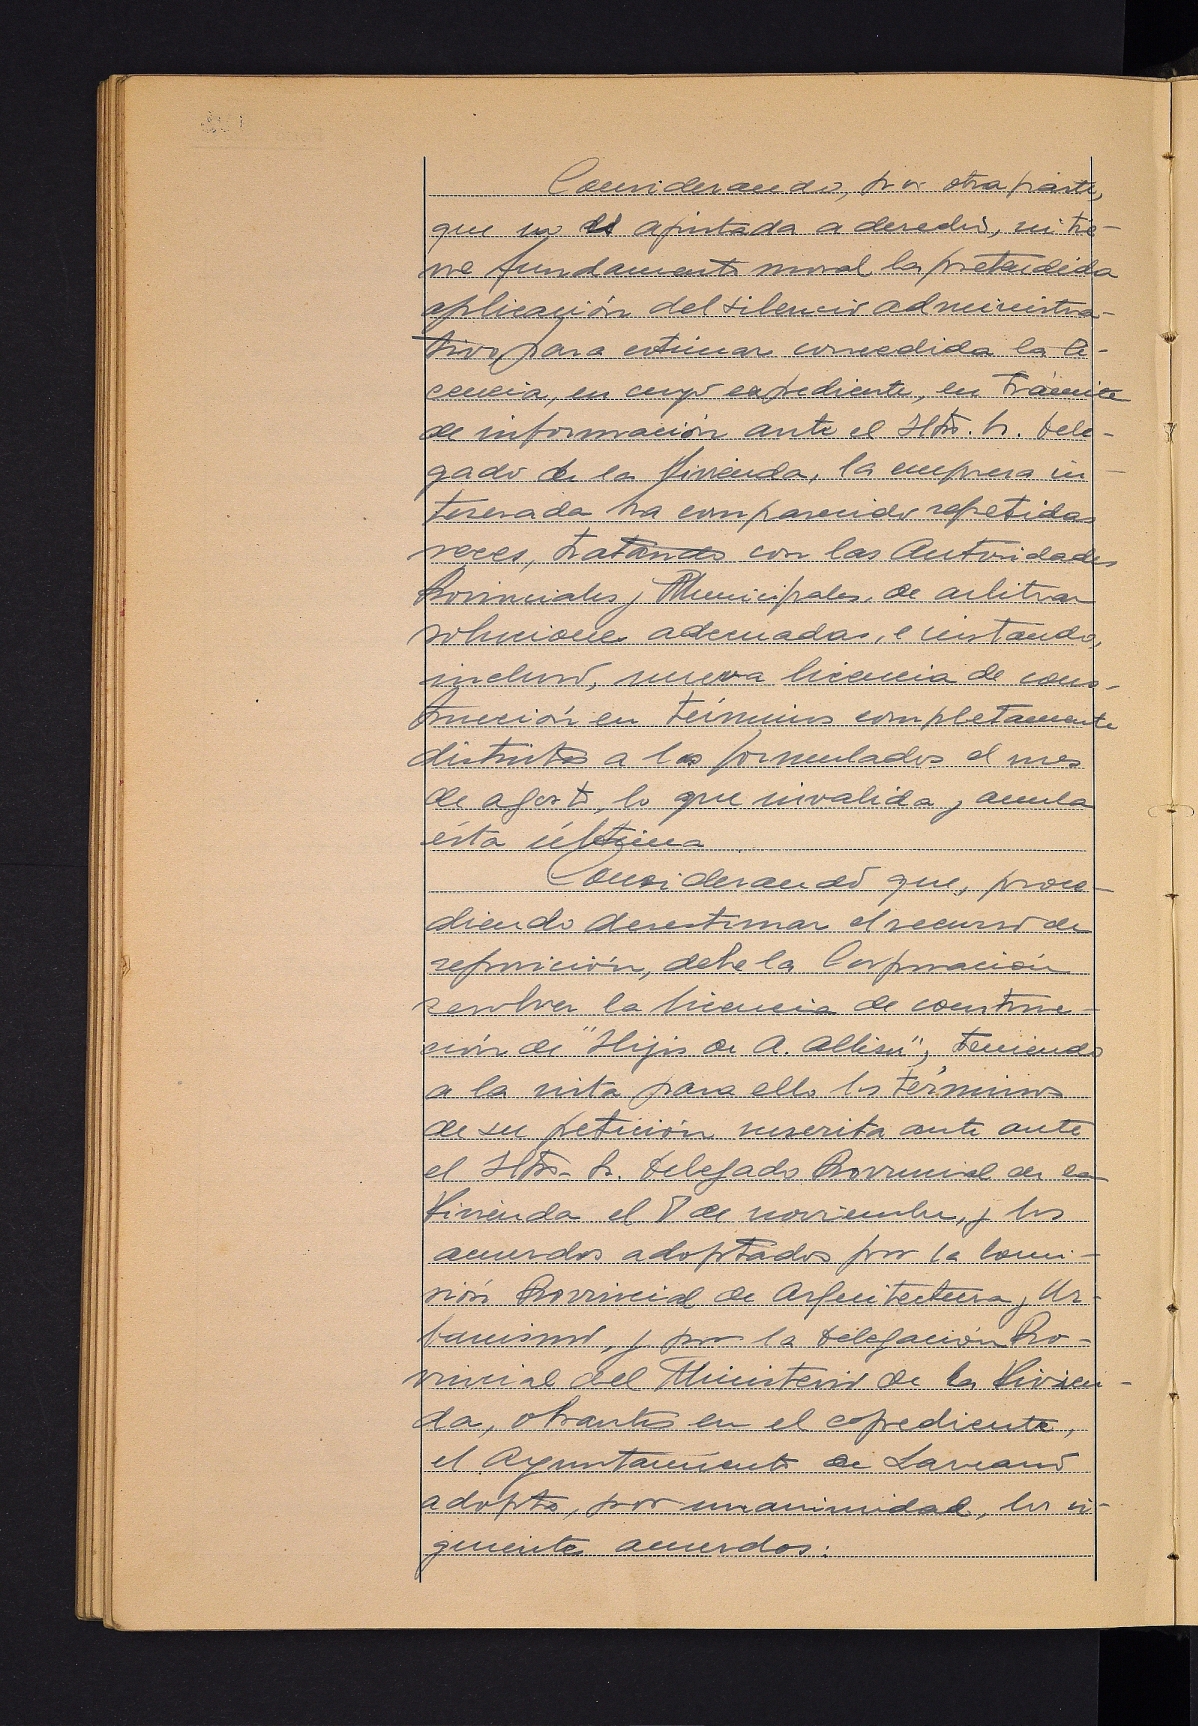 Considerando, por otra parte,
que no es ajustada a derecho, ni tie-
ne fundamento moral la pretendida
aplicación del silencio administra-
tivo para estimar concedida la li-
cencia, en cuyo expediente, en trámite
de información ante el Iltro. Sr. Dele-
gado de la Vivienda, la empresa in-
teresada ha comparecido repetidas
veces, tratando con las Autoridades
Provinciales y Municipales, de arbitrar
soluciones adecuadas, e instando,
incluso, nueva licencia de cons-
trucción en términos completamente
distintos a los formulados el mes
de agosto, lo que invalida y anula
ésta última.
Considerando que, proce-
diendo desestimar el recurso de
reposición, debe la Corporación
resolver la licencia de construc-
ción de "Hijos de A. Albisu", teniendo
a la vista para ello los términos
de su petición suscrita ante ante
el Iltro. Sr. Delegado Provincial de la
Vivienda el 8 de noviembre, y los
acuerdos adoptados por la Comi-
sión Provincial de Arquitectura y Ur-
banismo, y por la Delegación Pro-
vincial del Ministerio de la Vivien-
da, obrantes en el expediente,
el Ayuntamiento de Lazcano
adopta, por unanimidad, los si-
guientes acuerdos: